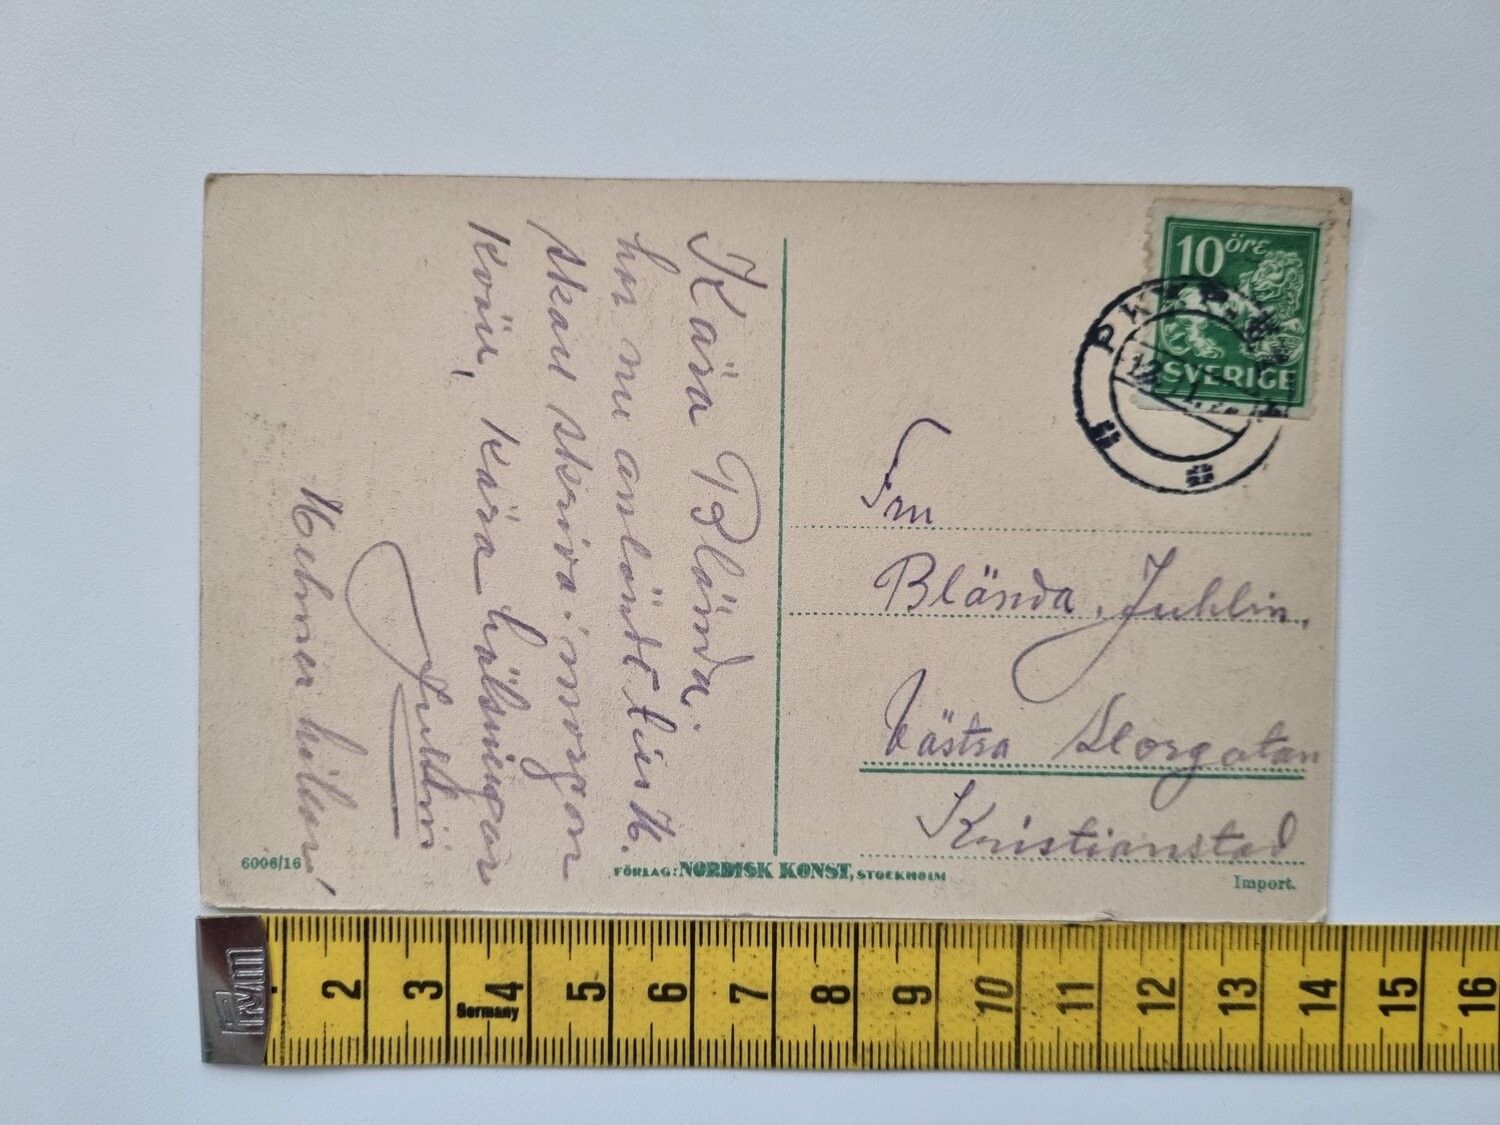 Kära Blända.
har nu anländt till H.
skall skriva i morgon
kväll, Kära hälsningar
Juhlin
Hälsar
10 öre
SVERIGE
PKXP. Nr
Fru
Blända, Juhlin,
Västra Storgatan
Kristianstad
6006/16
FÖRLAG: NORDISK KONST, STOCKHOLM
Import.
Prym
2 3 4 5 6 7 8 9 10 11 12 13 14 15 16
Germany